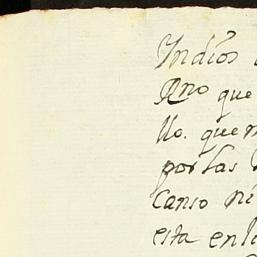 Indios
Rno que
llo. quem
por las
Canso ni
esta enl